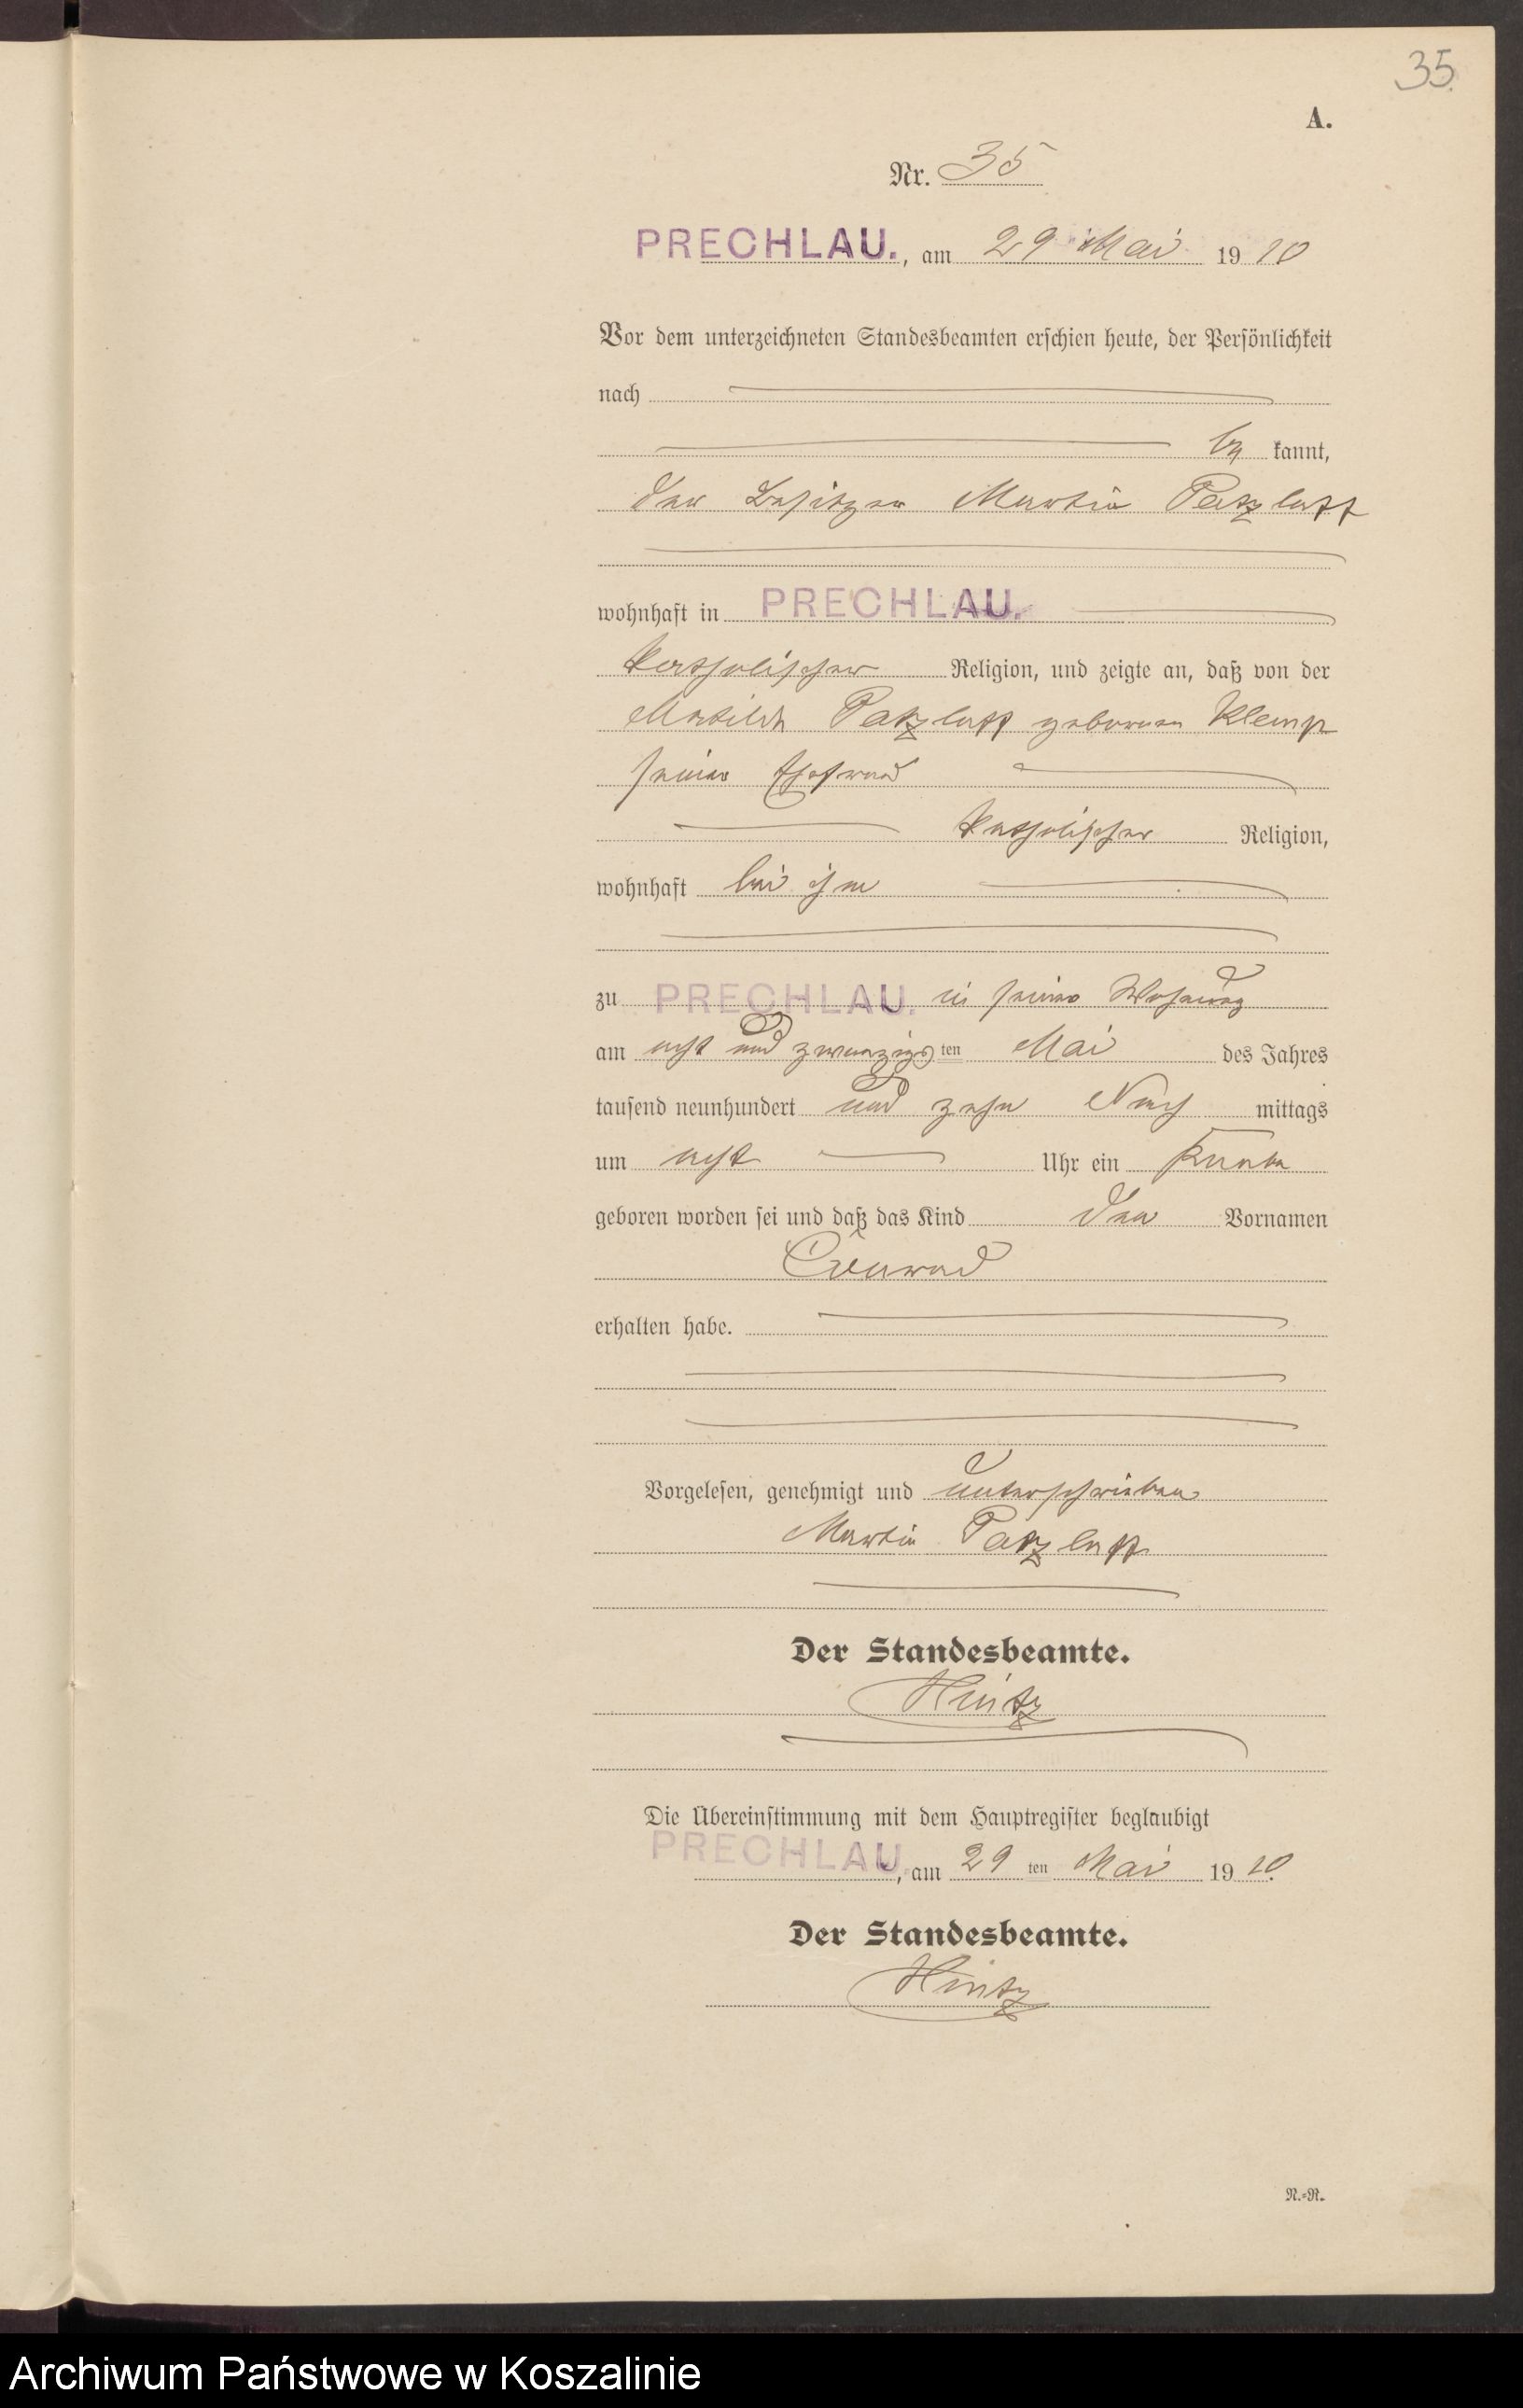 35.
A.
Nr. 35
PRECHLAU., am 29 Mai 1910
Vor dem unterzeichneten Standesbeamten erschien heute, der Persönlichkeit
nach
be kannt,
der Besitzer Martin Patzlaff
wohnhaft in PRECHLAU.
katholischer Religion, und zeigte an, daß von der
Patzlaff geborenen Klemp
seiner Ehefrau
katholischer Religion,
wohnhaft bei ihm
zu PRECHLAU. in seiner Wohnung
am acht und zwanzigsten Mai des Jahres
tausend neunhundert und zehn Nach mittags
um acht Uhr ein Knabe
geboren worden sei und daß das Kind den Vornamen
Conrad
erhalten habe.
Vorgelesen, genehmigt und unterschrieben
Martin Patzlaff
Der Standesbeamte.
Hintz
Die Übereinstimmung mit dem Hauptregister beglaubigt
PRECHLAU, am 29 ten Mai 1910.
Der Standesbeamte.
Hintz
N.=R.
Archiwum Państwowe w Koszalinie